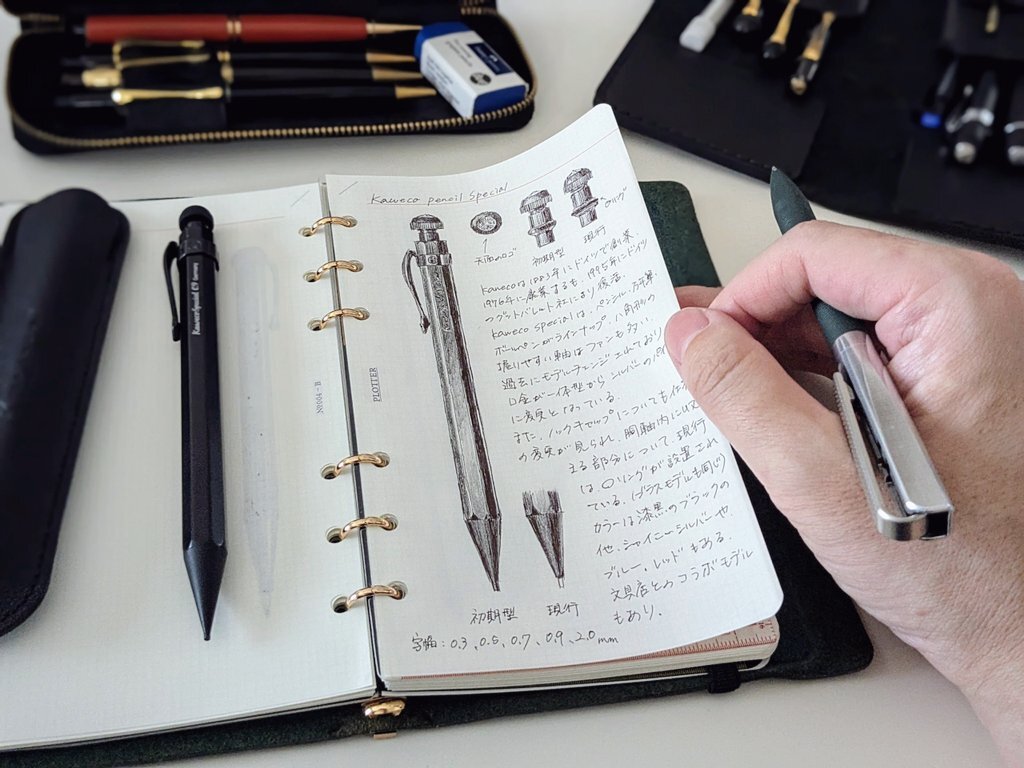 Kaweco pencil Special
天面のロゴ
初期型
現行
Oリング
Kawecoは1883年にドイツで創業
1976年に廃業するも、1995年にドイツ
のグットバレット社により復活
Kaweco Specialは、ペンシル・万年筆・
ボールペンがラインナップ。八角形の
握りやすい軸はファンも多い。
過去にモデルチェンジされており
口金が一体型からシルバーのパイ
に変更となっている。
また、ノックキャップについても仕
の変更が見られ、胴軸内に収
まる部分について、現行
は、Oリングが設置され
ている。(ブラスモデルも同じ)
カラーは漆黒のブラックの
他、シャイニーシルバーや
ブルー・レッドもある。
文具店とのコラボモデル
もあり。
初期型
現行
字幅:0.3、0.5、0.7、0.9、2.0mm
PLOTTER
Kaweco Special
Germany